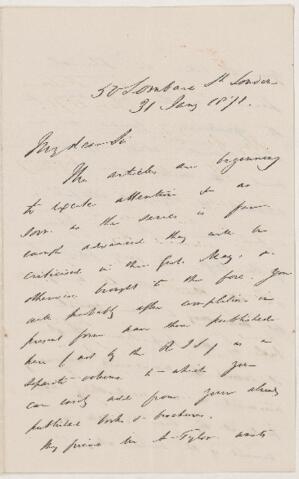 50 Lombard St. London
31 Jany 1871.
My dear Sir
The articles are beginning
to excite attention & as
soon as the series is far
enough advanced they will be
criticised in the
otherwise brought to the fore. You
will probably after completion in
present form have them published
here (not by the
separate volume to which you
can easily add from your already
published books & brochures.
My friend Mr A. Tylor wants